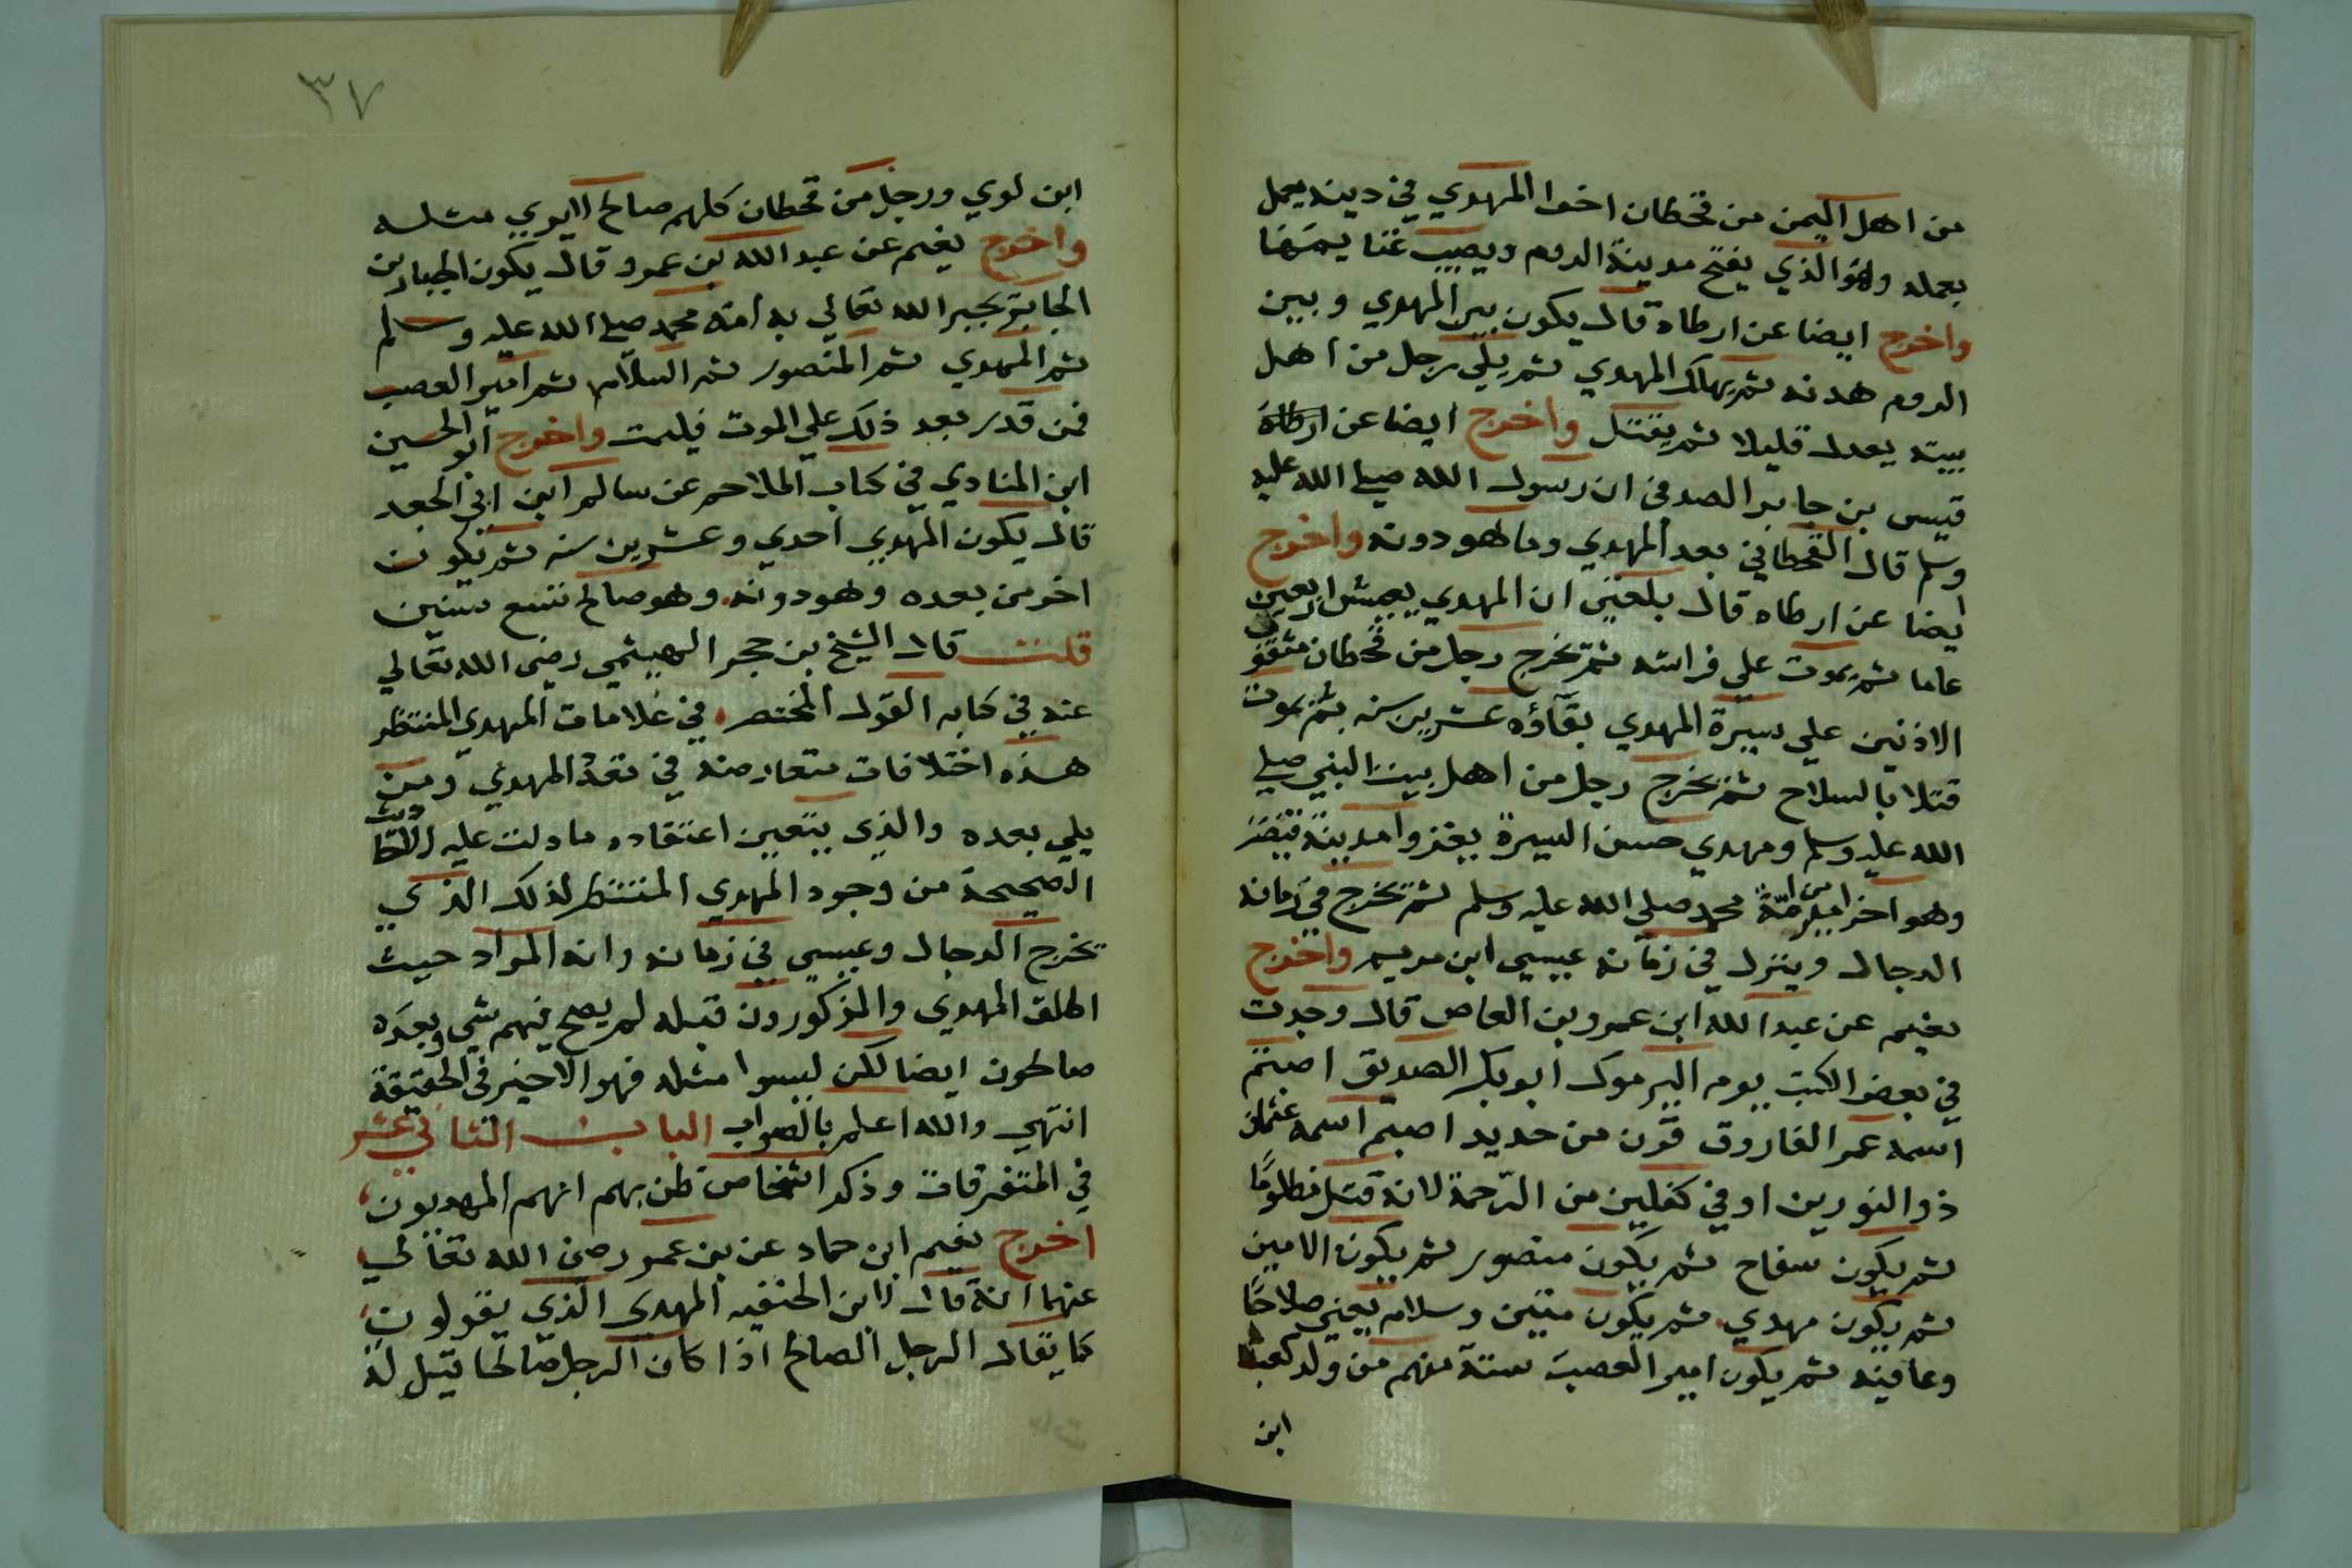 من اهل اليمن من قحطان اخوا المهدي في دينه يعمل
بعمله وهو الذي يفتح مدينة الروم ويصيب غنايمها
واخرج ايضا عن ارطاه قال يكون بين المهدي وبين
الروم هدنه ثم يهلك المهدي ثم يلي رجل من اهل
بيته يعدل قليلا ثم يقتل واخرج ايضا عن
قيس بن جابر الصدفي ان رسول الله صلي الله عليه
وسلم قال القحطاني بعد المهدي وما هو دونه واخرج
ايضا عن ارطاه قال بلغني ان المهدي يعيش اربعين
عاما ثم يموت علي فراشه ثم يخرج رجل من قحطان مثقوب
الاذنين علي سيرة المهدي بقآؤه عشرين سنه ثم يموت
قتلا بالسلاح ثم يخرج رجل من اهل بيت النبي صلي
الله عليه وسلم ومهدي حسن السيرة يغزوا مدينة قيصر
وهو اخر امير من امة محمد صلي الله عليه وسلم ثم يخرج في زمانه
الدجال وينزل في زمانه عيسي ابن مريم واخرج
نعيم عن عبد الله ابن عمرو بن العاص قال وجدت
في بعض الكتب يوم اليرموك ابو بكر الصديق اصبتم
اسمه عمر الفاروق قرن من حديد اصبتم اسمه عثمان
ذو النورين اوفي كفلين من الرحمة لانه قتل مظلومًا
ثم يكون سفاح ثم يكون منصور ثم يكون الامين
ثم يكون مهدي ثم يكون متين وسلام يعني صلاحًا
وعافيه ثم يكون امير العصب ستة منهم من ولد كعب
ابن
٣٧
ابن لوي ورجل من قحطان كلهم صالح لايري مثله
واخرج نعيم عن عبد الله بن عمرو قال يكون الجبار بن
الجابر يجبر الله تعالي به امة محمد صلي الله عليه وسلم
ثم المهدي ثم المنصور ثم السلام ثم امير العصب
فمن قدر بعد ذلك علي الموت فليمت واخرج ابو الحسين
ابن المنادي في كتاب الملاحم عن سالم ابن ابي الجعد
قال يكون المهدي احدي وعشرين سنه ثم يكون
اخر من بعده وهو دونه وهو صالح تسع سنين
قلت قال الشيخ بن حجر الهيثمي رضي الله تعالي
عنه في كتابه القول المختصر في علامات المهدي المنتظر
هذه اختلافات متعارضة في مدة المهدي ومن
يلي بعده والذي يتعين اعتقاده ما دلت عليه الاحاديث
الصحيحة من وجود المهدي المنتظر لذلك الذي
يخرج الدجال وعيسي في زمانه وانه المراد حيث
اطلق المهدي والمذكورون قبله لم يصح فيهم شي وبعده
صالحون ايضا لكن ليسوا مثله فهو الاخير في الحقيقة
انتهي والله اعلم بالصواب الباب الثاني عشر
في المتفرقات وذكر اشخاص ظن بهم انهم المهديون
اخرج نعيم ابن حماد عن بن عمر رضي الله تعالي
عنهما انه قال لابن الحنفيه المهدي الذي يقولون
كما يقال الرجل الصالح اذا كان الرجل صالحا قيل له